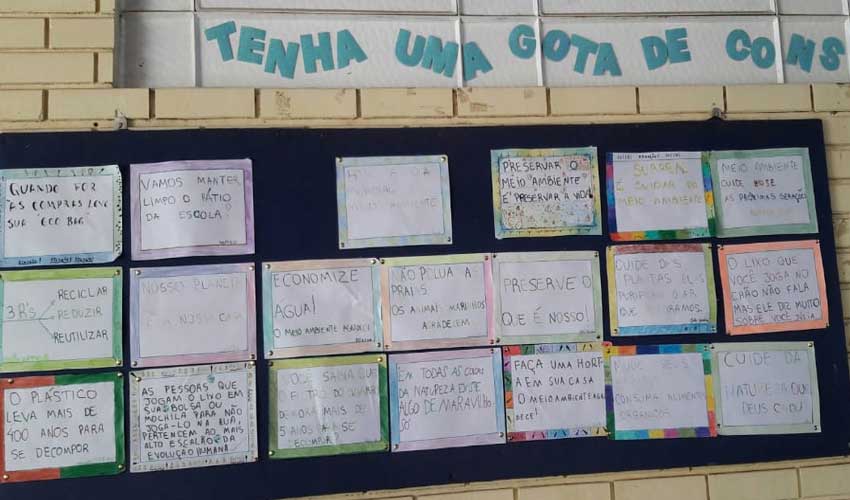 TENHA UMA GOTA DE CONS
QUANDO FOR
AS COMPRAS LEVE
SUA "ECO BAG"
VAMOS MANTER
LIMPO O PÁTIO
DA ESCOLA
PRESERVAR O
MEIO AMBIENTE
É PRESERVAR A VIDA!
E CUIDAR DO
MEIO AMBIENTE
MEIO AMBIENTE
CUIDE HOJE
AS PRÓXIMAS GERAÇÕES
3R's
RECICLAR
REDUZIR
REUTILIZAR
NOSSO PLANETA
É A NOSSA CASA
ECONOMIZE
ÁGUA!
O MEIO AMBIENTE AGRADECE
NÃO POLUA A
PRAIAS
OS ANIMAIS MARINHOS
AGRADECEM
PRESERVE O
QUE É NOSSO!
CUIDE DAS
PLANTAS ELAS
PURIFICAM O AR
QUE RESPIRAMOS.
O LIXO QUE
VOCÊ JOGA NO
CHÃO NÃO FALA
MAS ELE DIZ MUITO
SOBRE VOCÊ
O PLÁSTICO
LEVA MAIS DE
400 ANOS PARA
SE DECOMPOR
AS PESSOAS QUE
JOGAM O LIXO EM
SUA BOLSA OU
MOCHILA PARA NÃO
JOGA-LO NA RUA,
PERTENCEM AO MAIS
ALTO ESCALÃO DA
EVOLUÇÃO HUMANA
VOCÊ SABIA QUE
O FILTRO DO CIGARRO
DEMORA MAIS DE
5 ANOS PARA SE
DECOMPOR?
EM TODAS AS COISAS
DA NATUREZA EXISTE
ALGO DE MARAVILHO
SO
FAÇA UMA HORT
A EM SUA CASA
O MEIO AMBIENTE AGRA
DECE!
CONSUMA ALIMENTOS
ORGÂNICOS
CUIDE DA
NATUREZA QUE
DEUS CRIOU